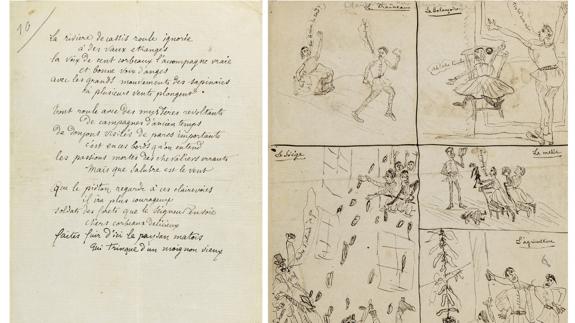 10
La rivière de cassis roule ignorée
à des vaux etranges
la voix de cent corbeaux l'acompagne vraie
et bonne voix d'anges
avec les grands mouvements des sapinaies
où plusieurs vents plongent.
tout roule avec des mysteres révoltants
de campagnes d'ancien temps
de donjons visités de parcs importants
c'est en ces bords qu'on entend
les passions mortes des chevaliers errants
Mais que salubre est le vent
Que le piéton regarde à ces clairevoies
il ira plus courageux
soldats des forêts que le Seigneur envoie
chers corbeaux délicieux
faites fuir d'ici le paysan matois
qui trinque d'un moignon vieux
Le traineau
La balançoire
Le Siège
L'agriculture